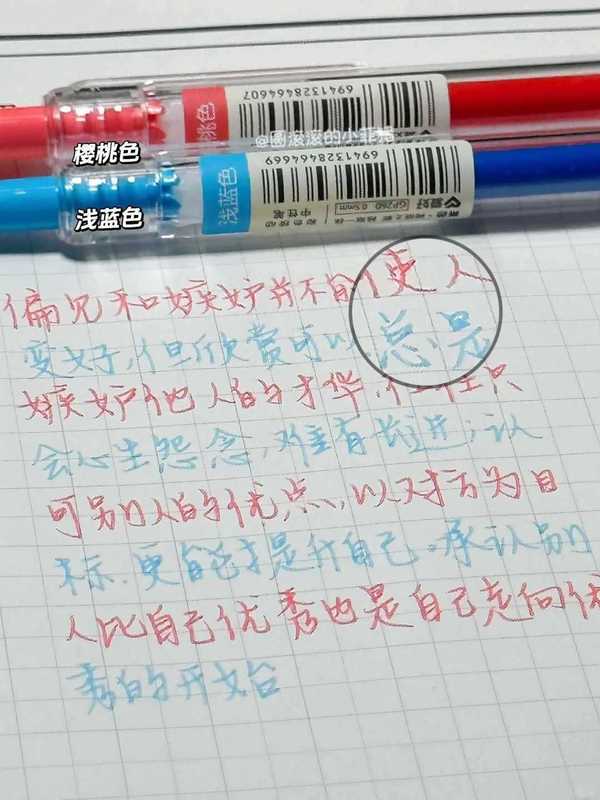 6941328464607
桃色
@圆滚滚的小
樱桃色
6941328464669
浅蓝色
爱好
GP260 0.5mm
中性笔
浅蓝色
偏见和嫉妒并不能使人
变好,但欣赏可以,总是
嫉妒他人的才华,往往只
会心生怨念,难有长进;认
可别人的优点,以对方为目
标.更能提升自己.承认别
人比自己优秀也是自己走向优
秀的开始